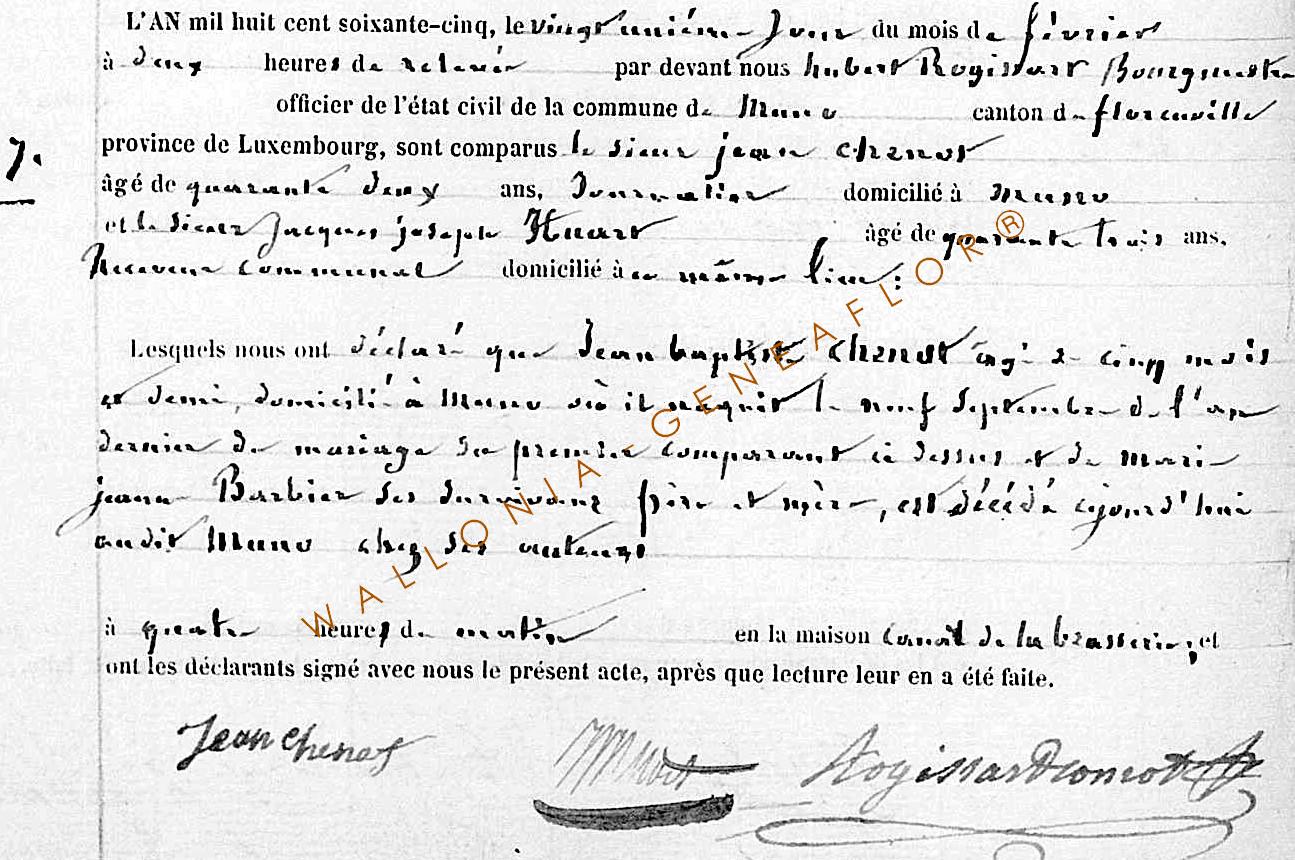 L'AN mil huit cent soixante-cinq, le vingt unième jour du mois de février
à deux heures de relevée par devant nous hubert Rogissart Bourgmestre
officier de l'état civil de la commune de Muno canton de florenville
7.
province de Luxembourg, sont comparus le sieur jean chenot
âgé de quarante deux ans, Journalier domicilié à Muno
et le sieur Jacques joseph Huart âgé de quarante trois ans,
Receveur communal domicilié à ce même lieu :
Lesquels nous ont déclaré que Jean baptiste chenot âgé de cinq mois
et demi, domicilié à Muno où il naquit le neuf Septembre de l'an
dernier du mariage du premier comparant ci dessus et de marie
jeanne Barbier ses survivans père et mère, est décédé cejourd'hui
audit Muno chez ses auteurs
à quatre heures du matin en la maison de la brasserie ; et
ont les déclarants signé avec nous le présent acte, après que lecture leur en a été faite.
Jean Chenot
WALLONIA-GENEAFLOR®